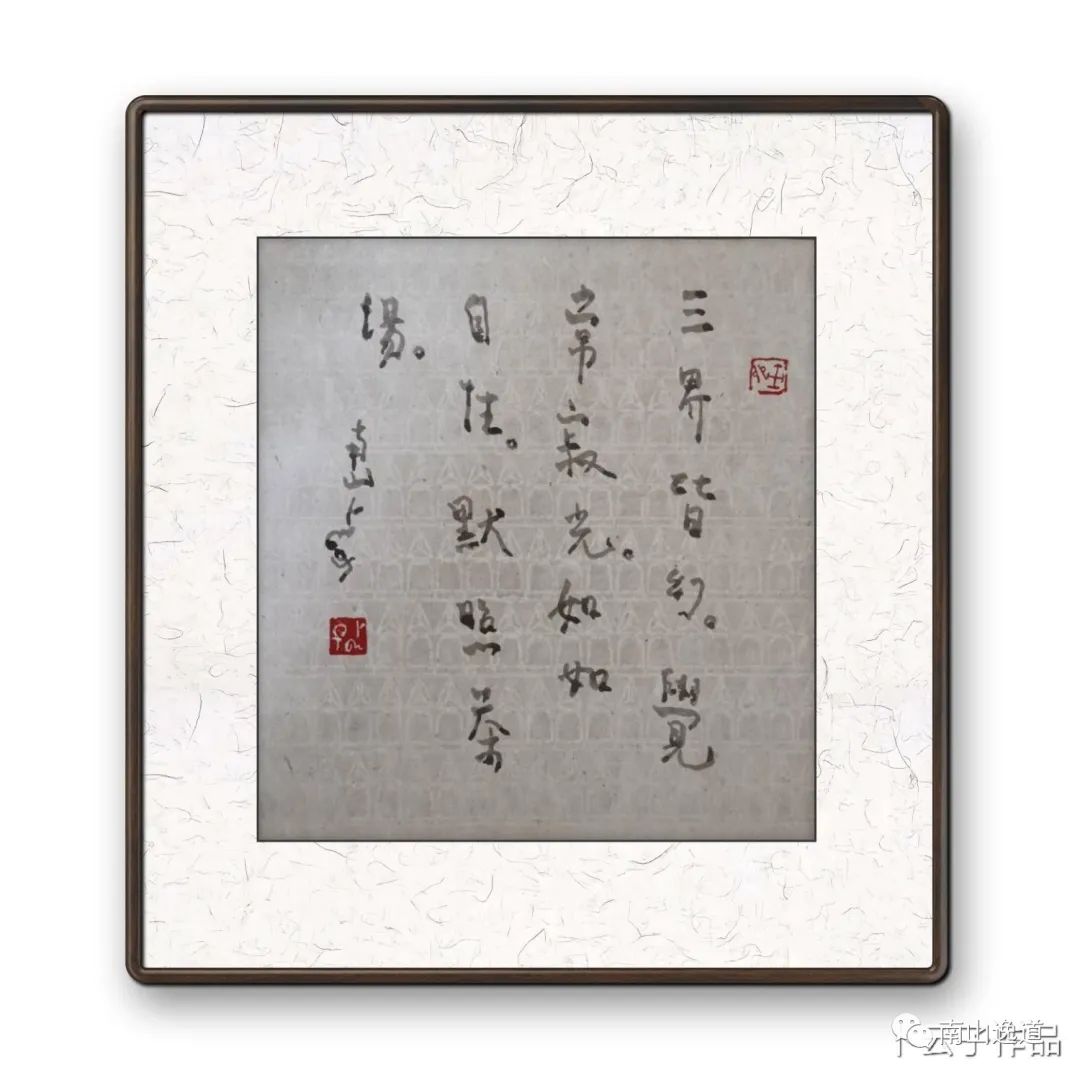 三界皆幻。覺
常寂光。如如
自性。默照茶
場。
南山卜
南山逸道
卜云子作品